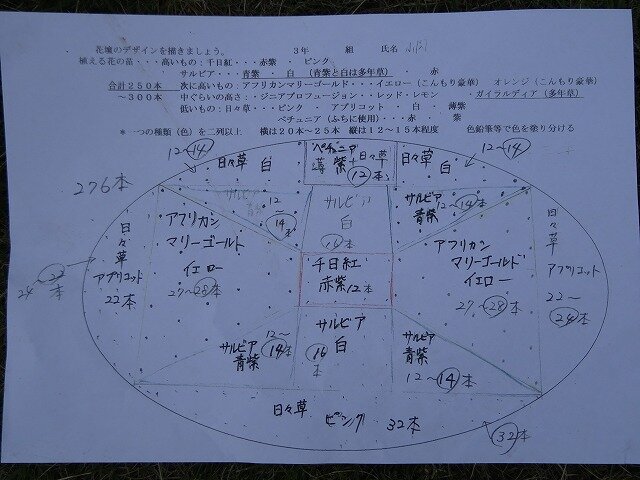 花壇のデザインを描きましょう。 3年 組 氏名
植える花の苗・・・高いもの：千日紅・・・赤紫 ・ ピンク
サルビア・・・青紫 ・ 白 （青紫と白は多年草） ・ 赤
合計250本 次に高いもの：アフリカンマリーゴールド・・・イエロー（こんもり豪華） オレンジ（こんもり豪華）
～300本 中ぐらいの高さ：ジニアプロフュージョン・・レッド・レモン ガイラルディア（多年草）
低いもの：日々草・・・ピンク ・ アプリコット ・ 白 ・ 薄紫
ペチュニア（ふちに使用）・・・赤 ・ 紫
＊一つの種類（色）を二列以上 横は20本～25本 縦は12～15本程度 色鉛筆等で色を塗り分ける
12～14
日々草 白
ペチュニア 薄紫 日々草 12本
日々草 白
12～14
276本
サルビア 青紫 12～14本
サルビア 白
サルビア 青紫 12～14本
日々草 アプリコット 22本
アフリカン
マリーゴールド
イエロー
27～28本
千日紅
赤紫12本
アフリカン
マリーゴールド
イエロー
27～28本
日々草 アプリコット
22～24本
サルビア 青紫 12～14本
サルビア 白 16本
サルビア 青紫
12～14本
日々草 ピンク 32本
32本